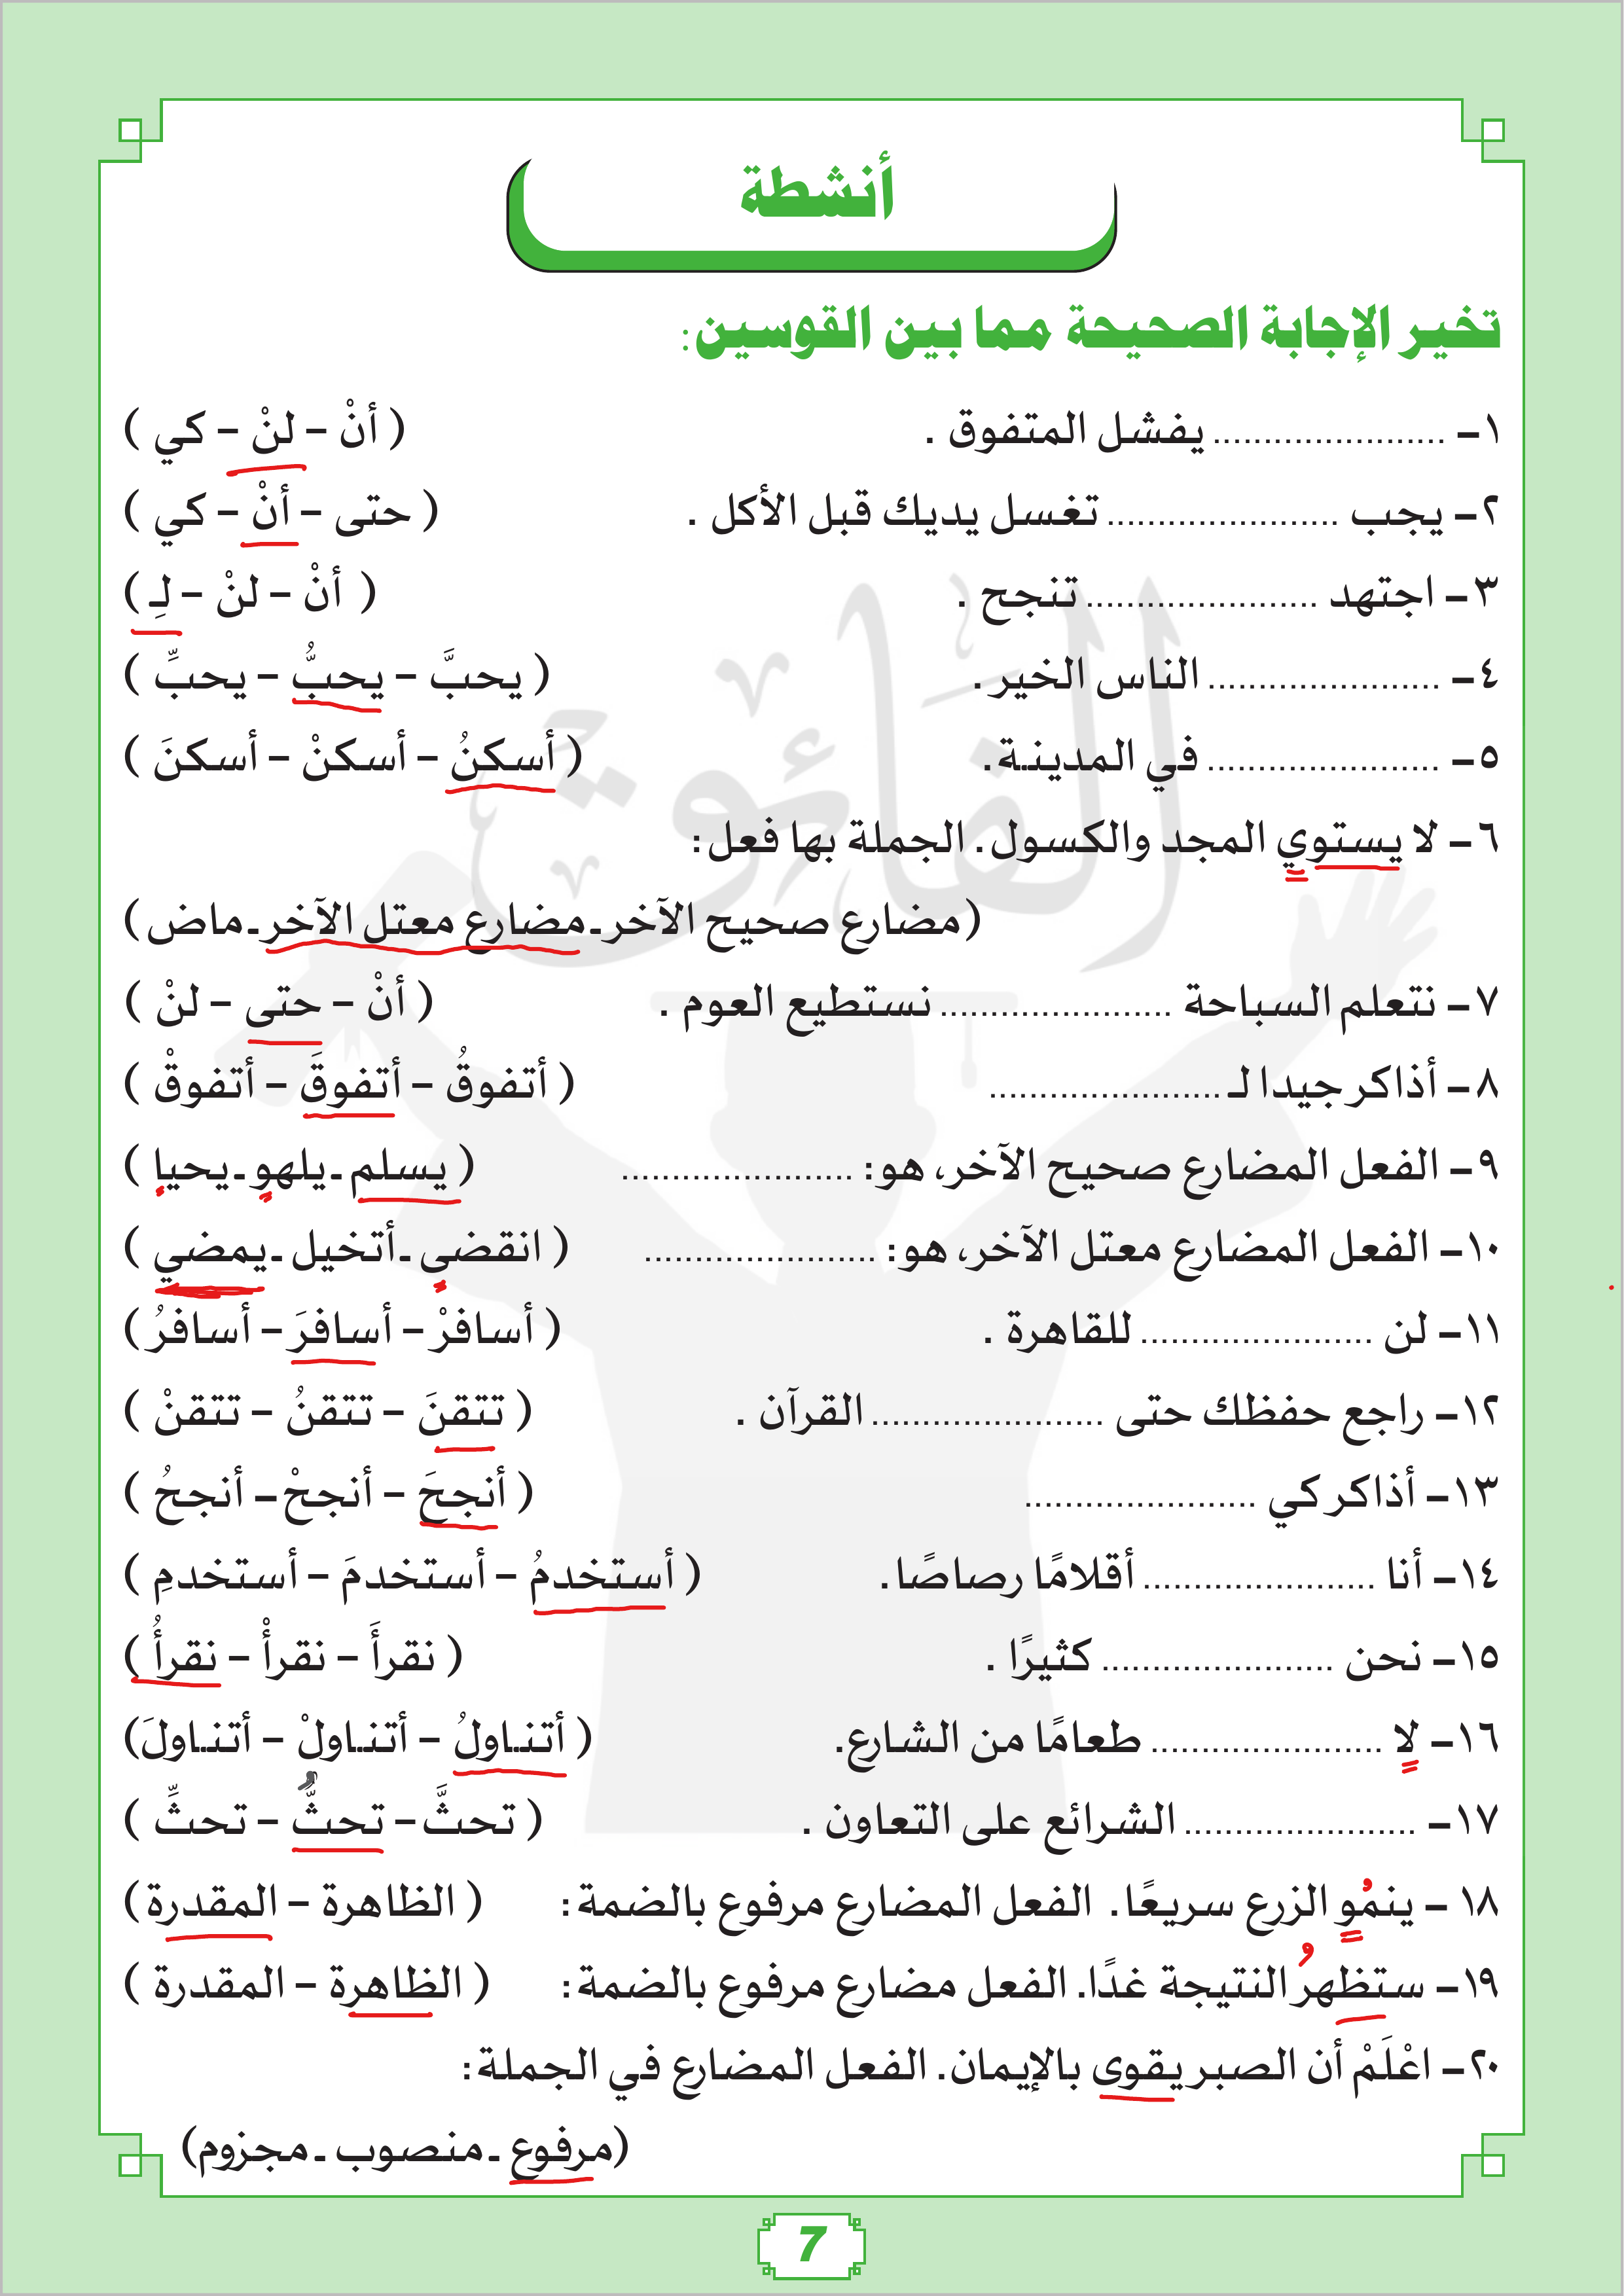 أنشطة
تخير الإجابة الصحيحة مما بين القوسين:
١- ....................... يفشل المتفوق . ( أنْ - لنْ - كي )
٢- يجب ....................... تغسل يديك قبل الأكل . ( حتى - أنْ - كي )
٣- اجتهد ....................... تنجح . ( أنْ - لنْ - لِـ )
٤- ....................... الناس الخير. ( يحبَّ - يحبُّ - يحبِّ )
٥- ....................... في المدينة. ( أسكنُ - أسكنْ - أسكنَ )
٦- لا يستوي المجد والكسول. الجملة بها فعل:
(مضارع صحيح الآخر ـ مضارع معتل الآخر ـ ماض )
٧- نتعلم السباحة ....................... نستطيع العوم . ( أنْ - حتى - لنْ )
٨- أذاكر جيدا لـ ....................... ( أتفوقُ - أتفوقَ - أتفوقْ )
٩- الفعل المضارع صحيح الآخر، هو: ....................... ( يسلم ـ يلهو ـ يحيا )
١٠- الفعل المضارع معتل الآخر، هو: ....................... ( انقضى ـ أتخيل ـ يمضي )
١١- لن ....................... للقاهرة . ( أسافرْ - أسافرَ - أسافرُ )
١٢- راجع حفظك حتى ....................... القرآن . ( تتقنَ - تتقنُ - تتقنْ )
١٣- أذاكر كي ....................... ( أنجحَ - أنجحْ - أنجحُ )
١٤- أنا ....................... أقلامًا رصاصًا. ( أستخدمُ - أستخدمَ - أستخدمِ )
١٥- نحن ....................... كثيرًا . ( نقرأَ - نقرأْ - نقرأُ )
١٦- لا ....................... طعامًا من الشارع. ( أتناولُ - أتناولْ - أتناولَ)
١٧- ....................... الشرائع على التعاون . ( تحثَّ - تحثُّ - تحثِّ )
١٨ - ينمو الزرع سريعًا. الفعل المضارع مرفوع بالضمة: ( الظاهرة - المقدرة )
١٩- ستظهرُ النتيجة غدًا. الفعل مضارع مرفوع بالضمة: ( الظاهرة - المقدرة )
٢٠- اعْلَمْ أن الصبر يقوى بالإيمان. الفعل المضارع في الجملة:
(مرفوع ـ منصوب ـ مجزوم)
7
الفائق